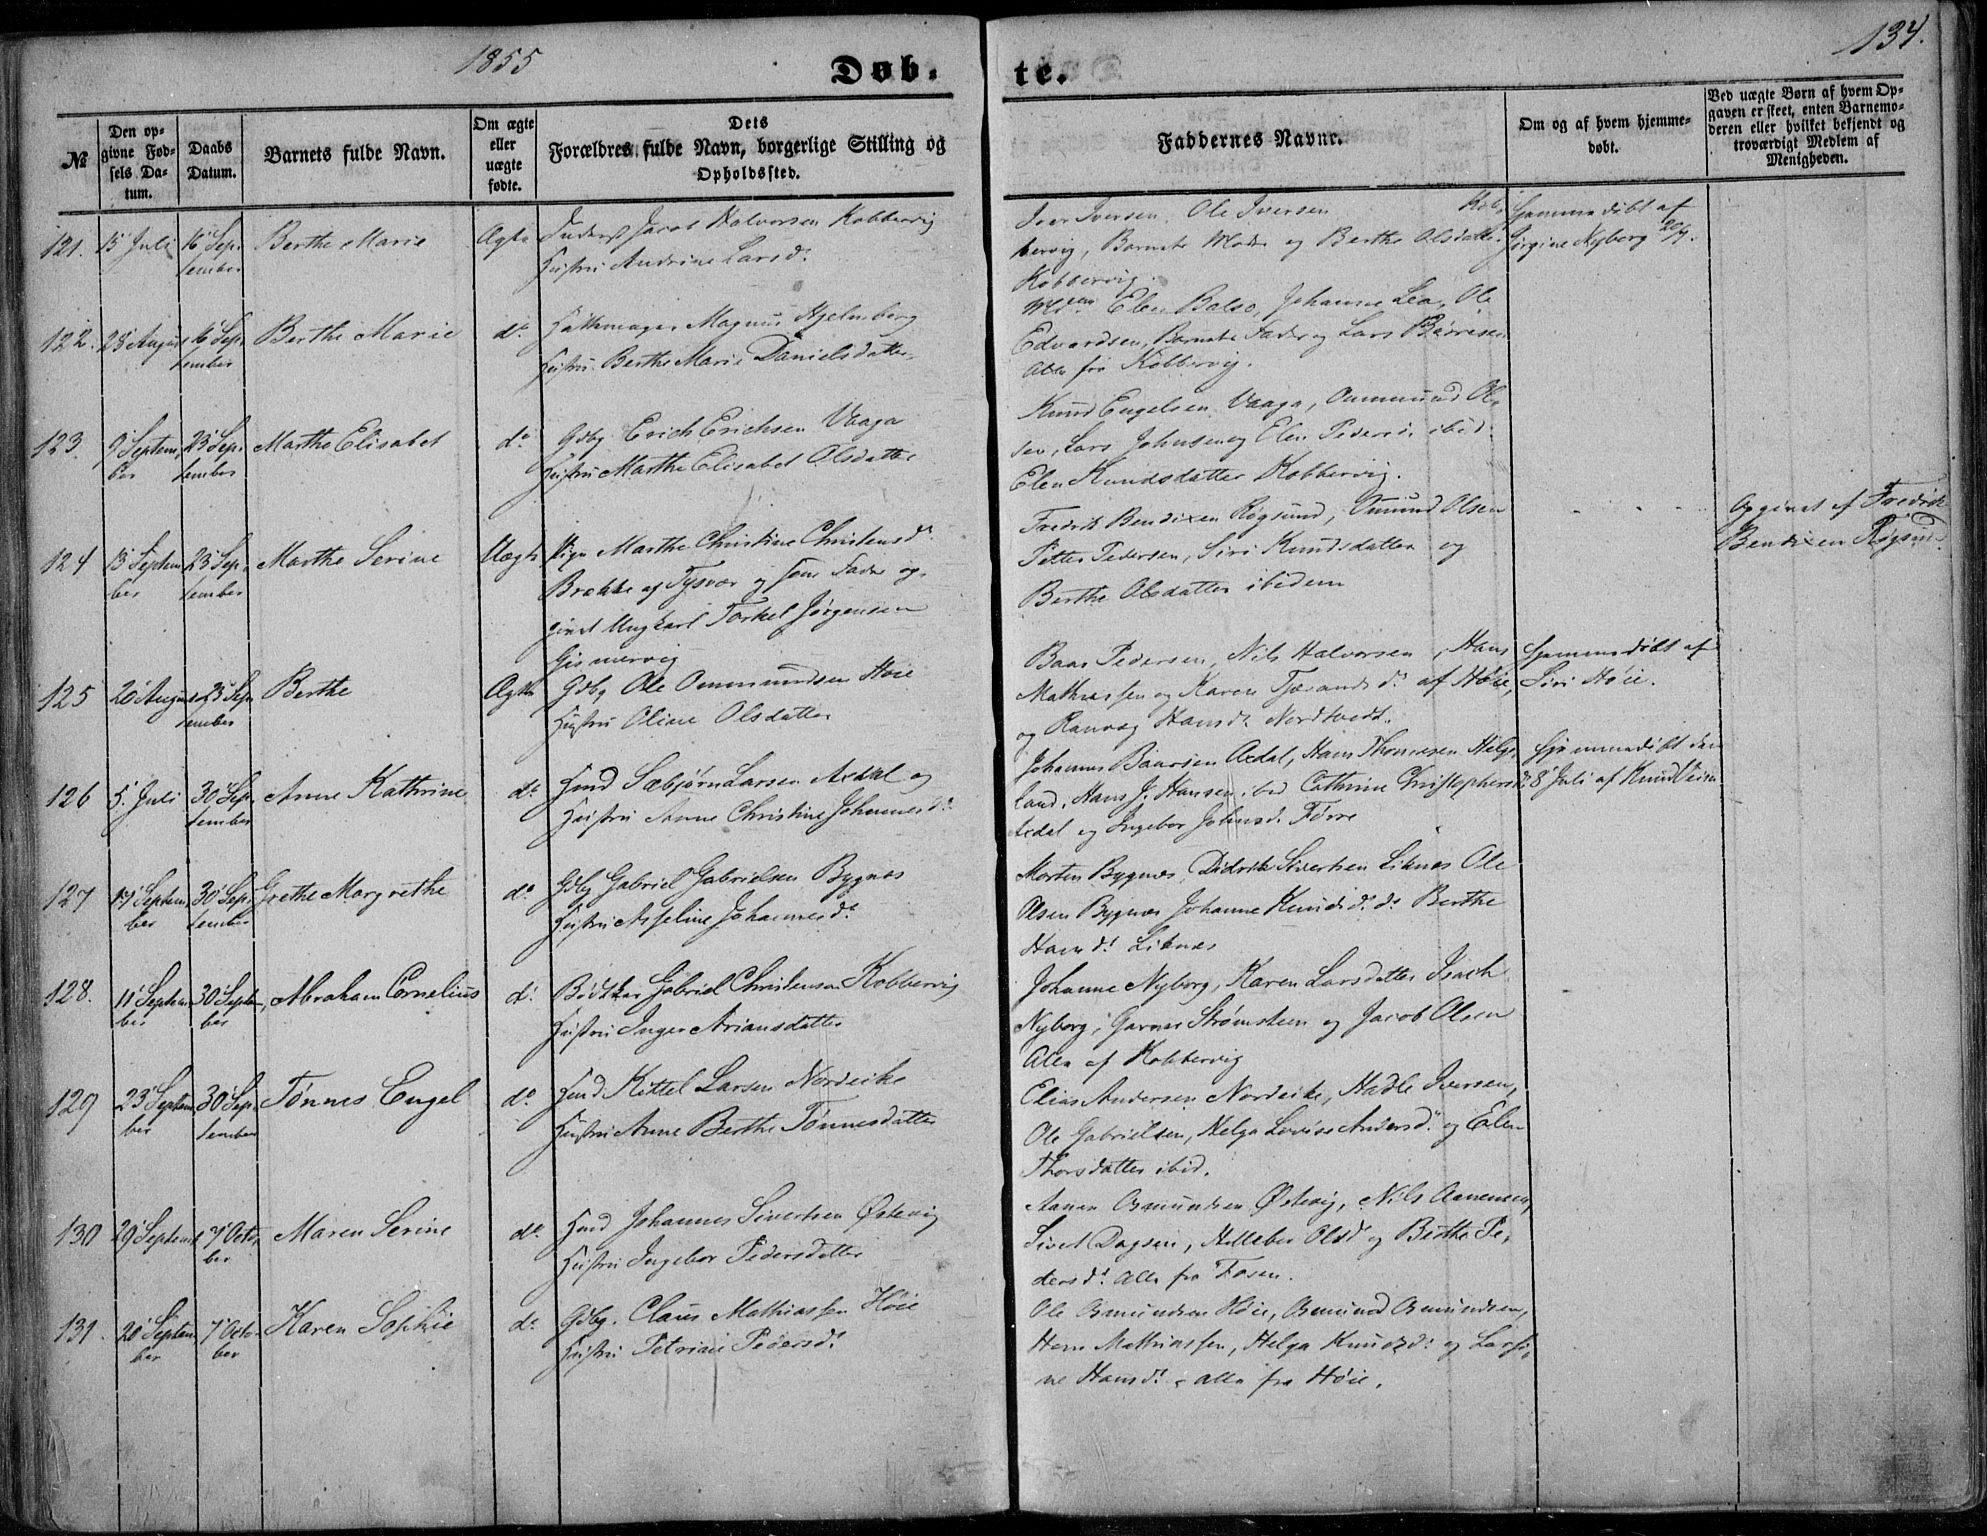 1855
Døb-
te.
134.
№
Den op-
givne Fød-
sels Da-
tum.
Daabs
Datum.
Barnets fulde Navn.
Om ægte
eller
uægte
fødte.
Dets
Forældres fulde Navn, borgerlige Stilling og
Opholdssted.
Faddernes Navne.
Om og af hvem hjemme-
døbt.
Ved uægte Børn af hvem Op-
gaven er skeet, enten Barnemo-
deren eller hvilket bekjendt og
troværdigt Medlem af
Menigheden.
121. 15 Juli 16 Sep- Berthe Marie Ægte Jacob Halvorsen Kobbervig
tember Hustru Andrine Larsd.
Iver Iversen, Ole Iversen Kob-
bervig, Barnets Moder og Berthe Olsdatter
Kobbervig.
Hjemmedøbt af
Jørgine Nyborg
122. 28 August 16 Sep- Berthe Marie do Hattemager Magnus Hjelmberg
tember Hustru Berthe Marie Danielsdatter
Elen Balso, Johanne Lea, Ole
Edvardsen, Barnets Fader og Lars Børresen
Alle fra Kobbervig.
123. 9 Septem- 23 Sep- Marthe Elisabet do Gdbg Erich Erichsen Vaaga
ber tember Hustru Marthe Elisabet Olsdatter
Knud Engelsen Vaaga, Ommund Ol-
sen, Lars Johnsen og Elen Pedersd. ibid.
Elen Knudsdatter Kobbervig.
124 13 Septem- 23 Sep- Marthe Serine Uægte Pige Marthe Christine Christensd.
ber tember Brække af Tysvær og som Fader op-
givet Ungkarl Torkel Jørgensen
Gismervig
Fredrik Bendixen Røgsund, Omund Olsen
Petter Pedersen, Siri Knudsdatter og
Berthe Olsdatter ibidem
Opgivet af Fredrik
Bendixen Røgsund.
125 20 August 23 Sep- Berthe Ægte Gdbg Ole Ommundsen Høie
tember Hustru Oline Olsdatter
Baar Pedersen, Nils Halvorsen, Hans
Mathiassen og Karen Tjerandsd. af Høie,
og Ranvog Hansd. Nordtvedt.
Hjemmedøbt af
Siri Høie.
126 5. Juli 30 Sep- Anne Kathrine do Huusmd Sæbjørn Larsen Axdal og
tember Hustru Anne Christine Johannesd.
Johannes Baarsen Axdal, Hans Thomesen Helge-
land, Hans J. Hansen ibid Cathrine Christophersd.
Axdal og Ingebor Johnsd. Førre
Hjemmedøbt den
28 Juli af Knud
127 17 Septem- 30 Sep- Grethe Margrethe do Gdbg Gabriel Gabrielsen Bygnæs
ber tember Hustru Asseline Johannesd.
Morten Bygnes, Didrik Sivertsen Liknes Ole
Olsen Bygnes Johanne Knudsd. do Berthe
Hansd. Liknes
128. 11 Septem- 30 Septem- Abraham Cornelius do Bødker Gabriel Christensen Kobbervig
ber ber Hustru Inger Ariansdatter
Johanne Nyborg, Karen Larsdatter Isach
Nyborg, Garver Strømsteen og Jacob Olsen
Alle af Kobbervig
129 23 Septem- 30 Sep- Tønnes Engel do Huusmd Kittel Larsen Nordvike
ber tember Hustru Anne Berthe Tønnesdatter
Elias Andersen Nordvike, Hadle Iversen,
Ole Gabrielsen, Helga Lovise Andersd. og Elen
Thorsdatter ibid.
130 29 Septem- 7 Octo- Maren Serine do Huusmd Johannes Sivertsen Østevig
ber Hustru Ingebor Pedersdatter
Aanen Osmundsen Østevig, Nils Aanensen,
Sivert Dagsen, Hellebor Olsd og Berthe Pe-
dersd. Alle fra Fosen.
131. 20 Septem- 7 Octo- Karen Sophie do Gdbg. Claus Mathiassen Høie
ber ber Hustru Petrine Pedersd.
Ole Osmundsen Høie, Osmund Osmundsen,
Hans Mathiassen, Helga Knudsd. og Larsi-
ne Hansd. alle fra Høie.